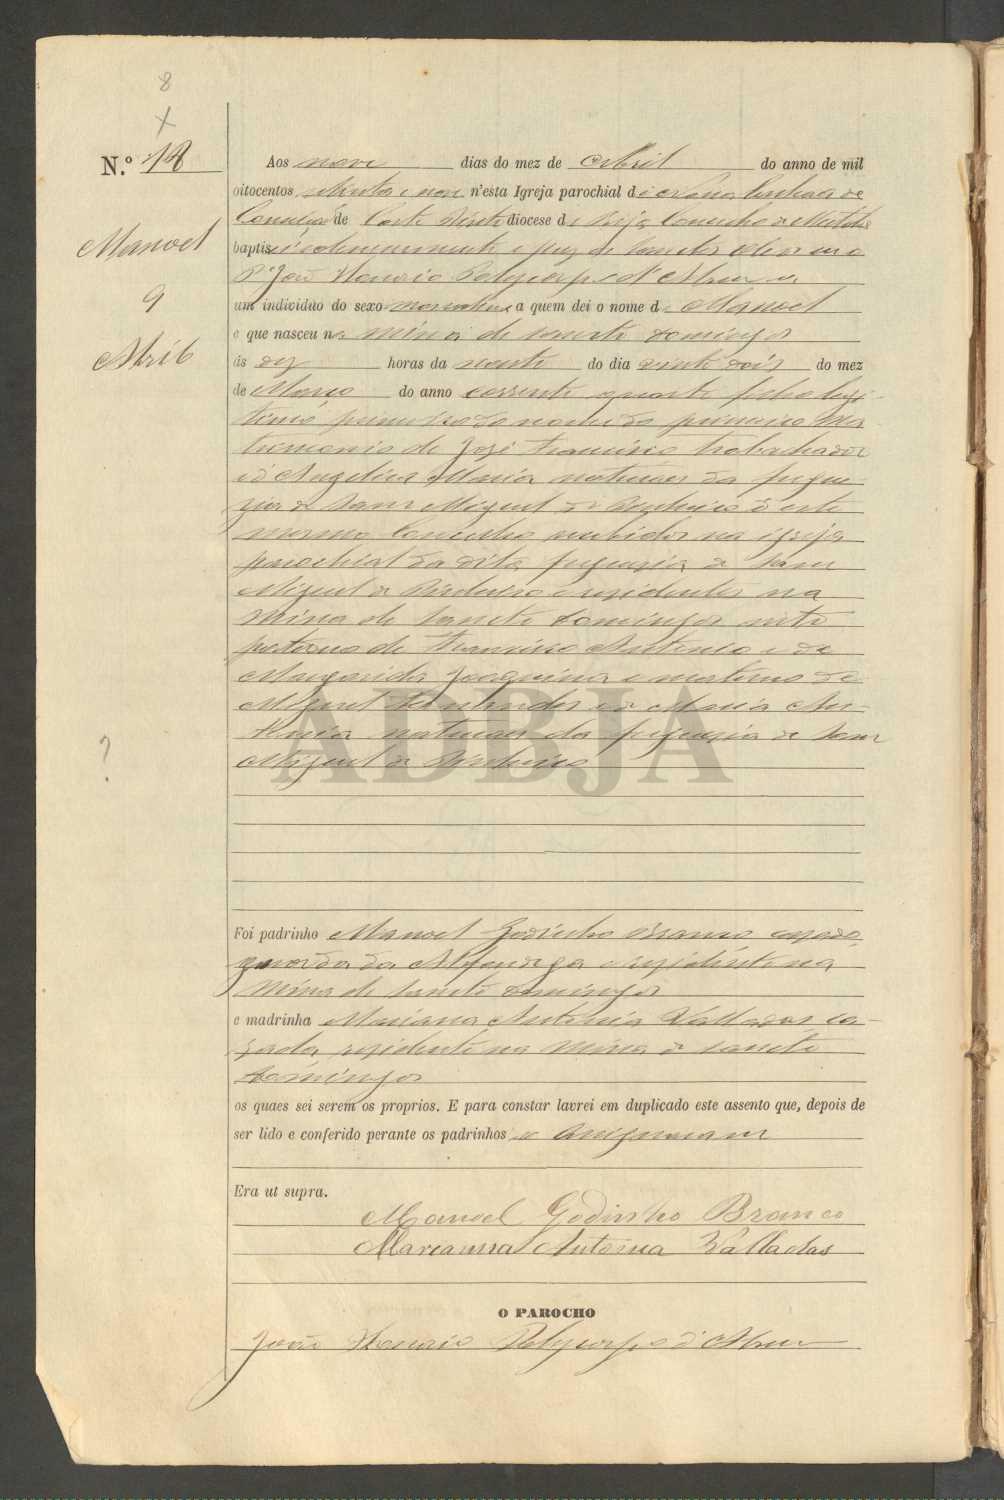 8
N.º 18
Manoel
9
Abril
?
Aos nove dias do mez de Abril do anno de mil
oitocentos oitenta e nove n'esta Igreja parochial de
Conceição de Corte Pinto diocese de Beja Concelho de Mertola
baptisei solemnemente e puz os Santos Oleos eu o
P.e João Honorio Polycarpo d'Abreu a
um individuo do sexo masculino a quem dei o nome de Manoel
e que nasceu na mina de Sancto Domingos
ás dez horas da noute do dia vinte dois do mez
de Março do anno corrente quarto filho legi-
timo primeiro do nome do primeiro Ma
trimonio de José Francisco trabalhador
e d'Angelica Maria naturaes da fregue
zia de Sam Miguel do Pinheiro d'este
mesmo Concelho recebidos na igreja
parochial da dita freguezia de Sam
Miguel do Pinheiro e residentes na
Mina de Sancto Domingos neto
paterno de Francisco Antonio e de
Margarida Joaquina e materno de
Miguel e de Maria An-
tonia naturaes da freguezia de Sam
Miguel do Pinheiro
Foi padrinho Manoel Godinho Branco casado
guarda da Alfandega e residente na
Mina de Sancto Domingos
e madrinha Mariana Antonia Valladas ca-
zada residente na Mina de Sancto
Domingos
os quaes sei serem os proprios. E para constar lavrei em duplicado este assento que, depois de
ser lido e conferido perante os padrinhos assignaram
Era ut supra.
Manoel Godinho Branco
Marianna Antonia Valladas
O PAROCHO
João Honorio Polycarpo d'Abreu
ADBJA